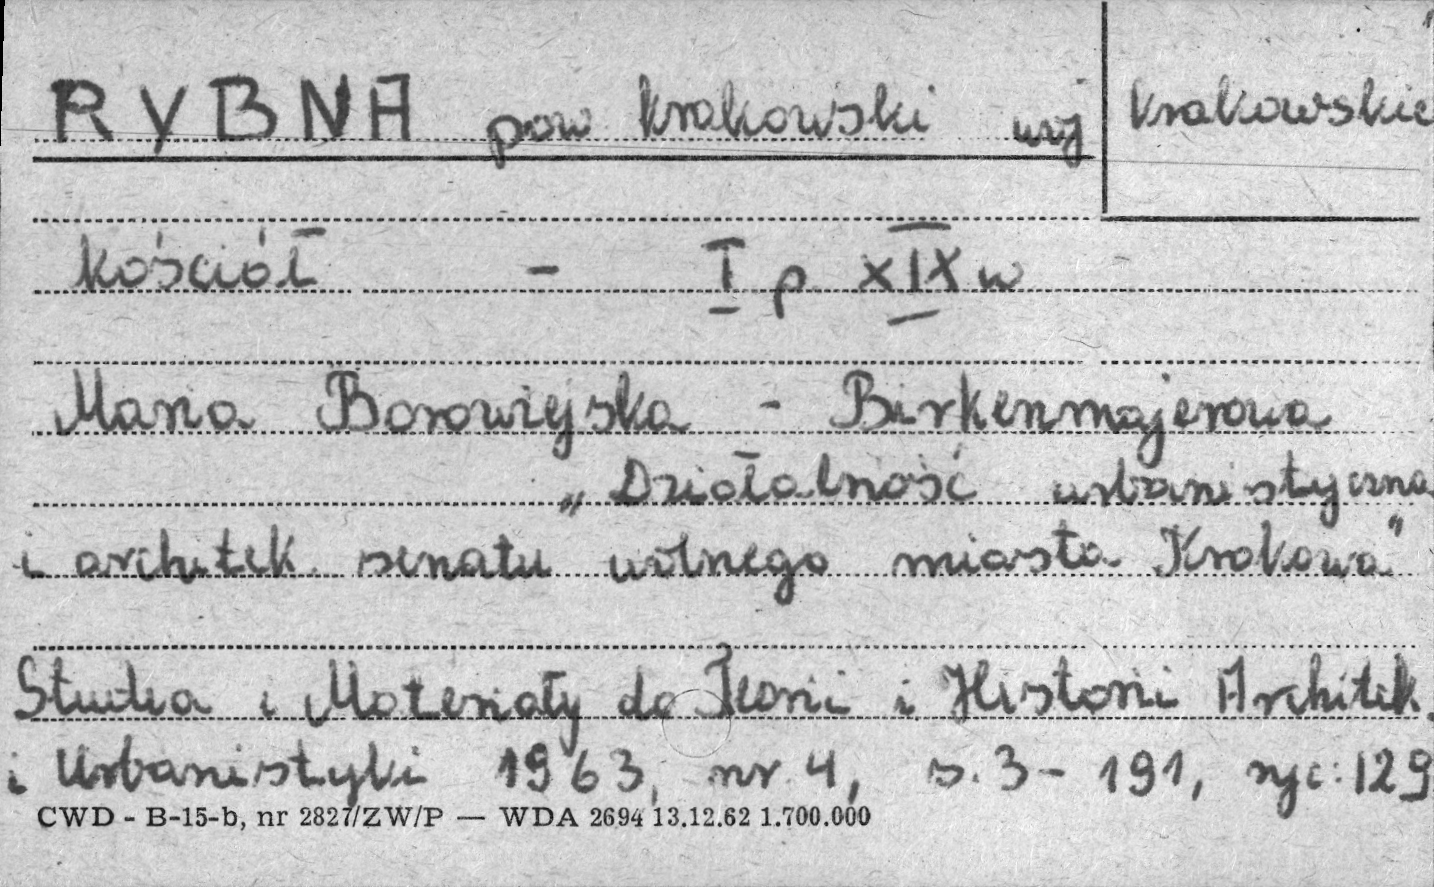 RYBNA pow krakowski woj krakowskie
kościół - I p XIX w
Maria Borowiejska - Birkenmajerowa
„Działalność urbanistyczna
i architek. senatu wolnego miasta Krakowa”
Studia i Materiały do Teorii i Historii Architek.
i Urbanistyki 1963, nr 4, s. 3 - 191, ryc: 129
CWD - B-15-b, nr 2827/ZW/P — WDA 2694 13.12.62 1.700.000